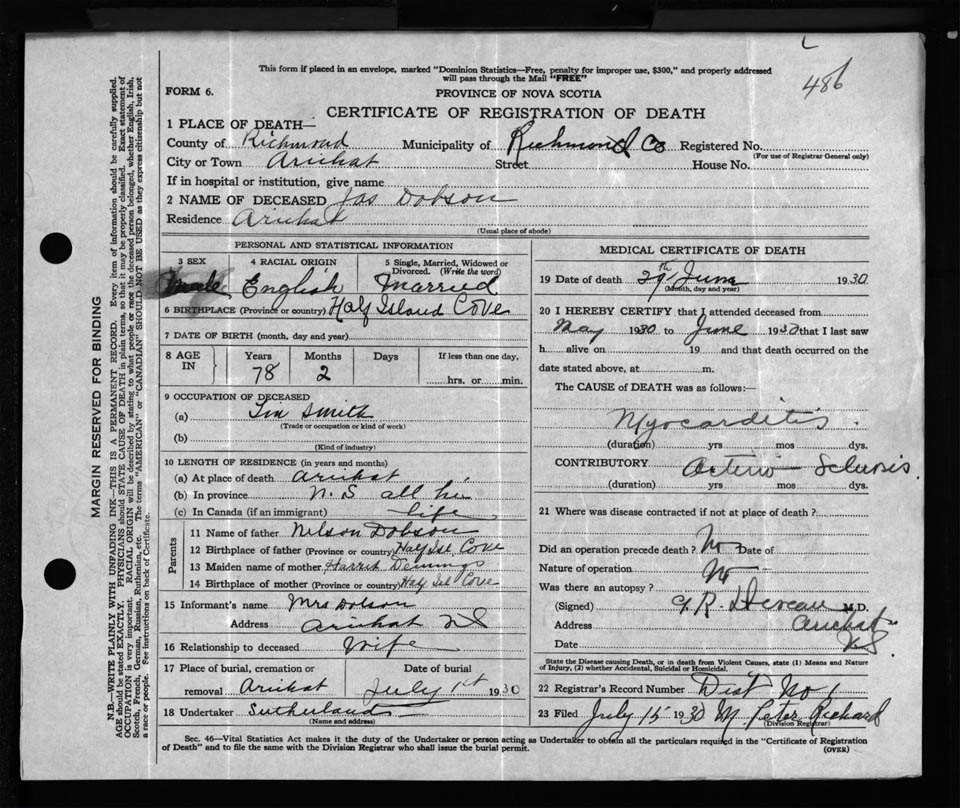 486
This form if placed in an envelope, marked "Dominion Statistics—Free, penalty for improper use, $300," and properly addressed
will pass through the Mail "FREE"
FORM 6.
PROVINCE OF NOVA SCOTIA
CERTIFICATE OF REGISTRATION OF DEATH
1 PLACE OF DEATH—
County of Richmond Municipality of Richmond Co Registered No.
(For use of Registrar General only)
City or Town Arichat Street House No.
If in hospital or institution, give name
2 NAME OF DECEASED Jas Dobson
Residence Arichat
(Usual place of abode)
PERSONAL AND STATISTICAL INFORMATION
3 SEX 4 RACIAL ORIGIN 5 Single, Married, Widowed or
Divorced. (Write the word)
Male English Married
6 BIRTHPLACE (Province or country) Half Island Cove
7 DATE OF BIRTH (month, day and year)
8 AGE IN Years Months Days If less than one day,
78 2 hrs. or min.
9 OCCUPATION OF DECEASED
(a) Tin Smith
(Trade or occupation or kind of work)
(b)
(Kind of industry)
10 LENGTH OF RESIDENCE (in years and months)
(a) At place of death Arichat
(b) In province N. S all his
(c) In Canada (if an immigrant) life
Parents
11 Name of father Nelson Dobson
12 Birthplace of father (Province or country) Half Isl Cove
13 Maiden name of mother Harriet Demings
14 Birthplace of mother (Province or country) Half Isl Cove
15 Informant's name Mrs Dobson
Address Arichat NS
16 Relationship to deceased Wife
17 Place of burial, cremation or Date of burial
removal Arichat July 1st 1930
18 Undertaker Sutherland
(Name and address)
MEDICAL CERTIFICATE OF DEATH
19 Date of death 29th June 1930
(Month, day and year)
20 I HEREBY CERTIFY that I attended deceased from
May 1930 to June 1930 that I last saw
h alive on 19 and that death occurred on the
date stated above, at m.
The CAUSE of DEATH was as follows:—
Myocarditis
(duration) yrs mos dys.
CONTRIBUTORY Arterio-Sclerosis
(duration) yrs mos dys.
21 Where was disease contracted if not at place of death?
Did an operation precede death? No Date of
Nature of operation
Was there an autopsy? No
(Signed) G. R. Deveau M.D.
Address Arichat
Date NS
State the Disease causing Death, or in death from Violent Causes, state (1) Means and Nature
of Injury, (2) whether Accidental, Suicidal or Homicidal.
22 Registrar's Record Number Dist No 1
23 Filed July 15 1930 M Peter Richard
(Division Registrar)
Sec. 46—Vital Statistics Act makes it the duty of the Undertaker or person acting as Undertaker to obtain all the particulars required in the "Certificate of Registration
of Death" and to file the same with the Division Registrar who shall issue the burial permit.
(OVER)
MARGIN RESERVED FOR BINDING
N.B.—WRITE PLAINLY WITH UNFADING INK—THIS IS A PERMANENT RECORD. Every item of information should be carefully supplied.
AGE should be stated EXACTLY. PHYSICIANS should STATE CAUSE OF DEATH in plain terms, so that it may be properly classified. Exact statement of
OCCUPATION is very important. RACIAL ORIGIN will be described by stating to what people or race the deceased person belonged, whether English, Irish,
Scotch, French, German, Russian, Ruthenian, etc. The terms "AMERICAN" or "CANADIAN" SHOULD NOT BE USED as they express citizenship but not
a race or people. See instructions on back of Certificate.